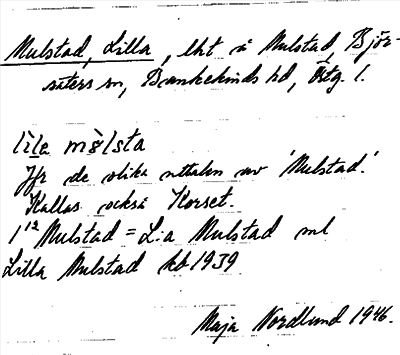 Mulstad, Lilla, lht å Mulstad, Björ-
säters sn, Bankekinds hd, Östg. l.
lìle ms̀lsta
Jfr de olika uttaln av 'Mulstad.'
Kallas också Korset.
1¹² Mulstad = L:a Mulstad ml
Lilla Mulstad kb 1939
Maja Nordlund 1946.